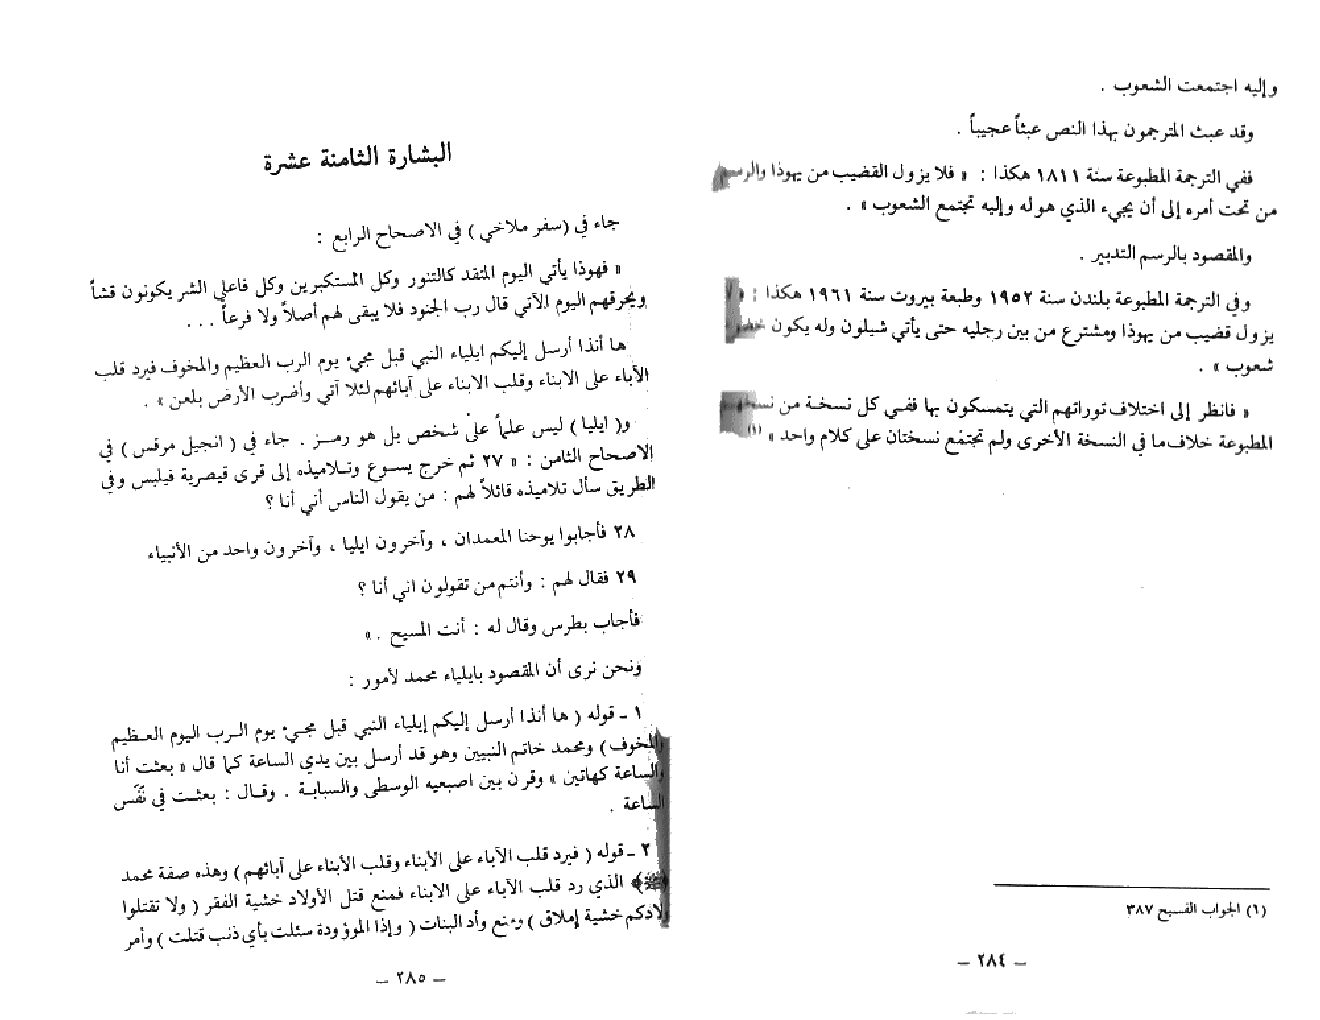 وإليه اجتمعت الشعوب .
وقد عبث المترجمون بهذا النص عبثاً عجيباً .
ففي الترجمة المطبوعة سنة ١٨١١ هكذا : « فلا يزول القضيب من يهوذا والرسم
من تحت أمره إلى أن يجيء الذي هو له وإليه تجتمع الشعوب » .
والمقصود بالرسم التدبير .
وفي الترجمة المطبوعة بلندن سنة ١٩٥٢ وطبعة بيروت سنة ١٩٦١ هكذا : «
يزول قضيب من يهوذا ومشترع من بين رجليه حتى يأتي شيلون وله يكون
شعوب » .
« فانظر إلى اختلاف توراتهم التي يتمسكون بها ففي كل نسخة من نسخهم
المطبوعة خلاف ما في النسخة الأخرى ولم تجتمع نسختان على كلام واحد » (١)
(١) الجواب الفسيح ٣٨٧
– ٢٨٤ –
البشارة الثامنة عشرة
جاء في (سفر ملاخي) في الاصحاح الرابع :
« فهوذا يأتي اليوم المتقد كالتنور وكل المستكبرين وكل فاعلي الشر يكونون قشاً
ويحرقهم اليوم الآتي قال رب الجنود فلا يبقى لهم أصلاً ولا فرعاً ...
ها أنذا أرسل إليكم ايلياء النبي قبل مجيء يوم الرب العظيم والمخوف فيرد قلب
الآباء على الابناء وقلب الابناء على آبائهم لئلا آتي وأضرب الأرض بلعن » .
و( ايليا ) ليس علماً على شخص بل هو رمز . جاء في ( انجيل مرقس ) في
الاصحاح الثامن : « ٢٧ ثم خرج يسوع وتلاميذه إلى قرى قيصرية فيلبس وفي
الطريق سأل تلاميذه قائلاً لهم : من يقول الناس أني أنا ؟
٢٨ فأجابوا يوحنا المعمدان ، وآخرون ايليا ، وآخرون واحد من الأنبياء
٢٩ فقال لهم : وأنتم من تقولون اني أنا ؟
فأجاب بطرس وقال له : أنت المسيح . »
ونحن نرى أن المقصود بايلياء محمد لأمور :
١ – قوله ( ها أنذا أرسل إليكم إيلياء النبي قبل مجيء يوم الرب اليوم العظيم
والمخوف ) ومحمد خاتم النبيين وهو قد أرسل بين يدي الساعة كما قال « بعثت أنا
والساعة كهاتين » وقرن بين اصبعيه الوسطى والسبابة . وقال : بعثت في نَفَس
الساعة .
٢ – قوله ( فيرد قلب الآباء على الأبناء وقلب الأبناء على آبائهم ) وهذه صفة محمد
﴿ﷺ﴾ الذي رد قلب الآباء على الابناء فمنع قتل الأولاد خشية الفقر ( ولا تقتلوا
أولادكم خشية إملاق ) ومنع وأد البنات ( وإذا الموؤودة سئلت بأي ذنب قتلت ) وأمر
– ٢٨٥ –